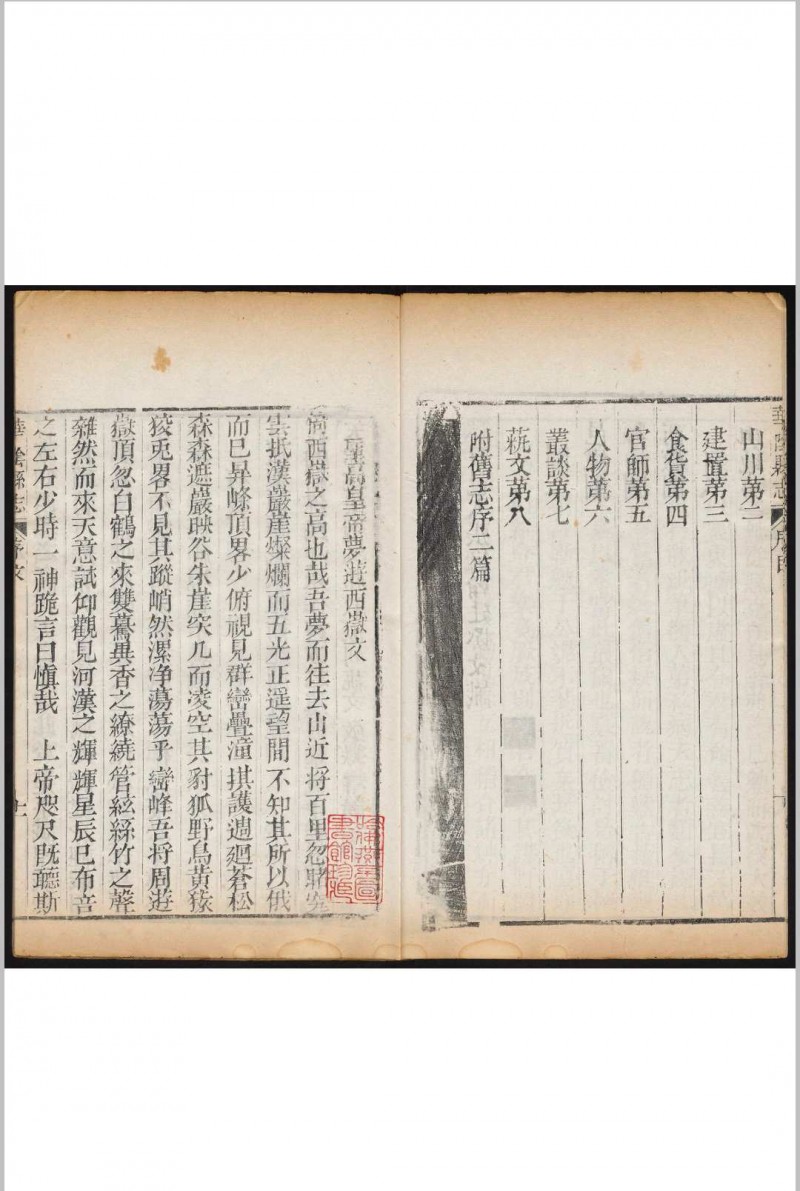 華陰縣志
山川第二
建置第三
食貨第四
官師第五
人物第六
叢談第七
蓺文第八
附舊志序二篇
高皇帝夢遊西嶽文
西嶽之高也哉吾夢而往去山近將百里忽睹穿
雲抵漢巖崖燦爛而五光正遥望間不知其所以俄
而已昇峰頂畧少俯視見群巒疊澭拱護週廻蒼松
森森遮巖映谷朱崖突兀而凌空其豺狐野鳥黄猿
狡兎畧不見其蹤峭然潔净蕩蕩乎巒峰吾將周遊
嶽頂忽白鶴之來雙驀異香之繚繞管絃絲竹之聲
雜然而來天意試仰觀見河漢之輝輝星辰已布吾
之左右少時一神跪言曰慎哉上帝咫尺旣聽斯
華陰縣志 序文